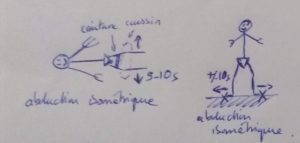 ceinture coussin
5-10s
abduction isométrique
+/-10s
abduction
isométrique